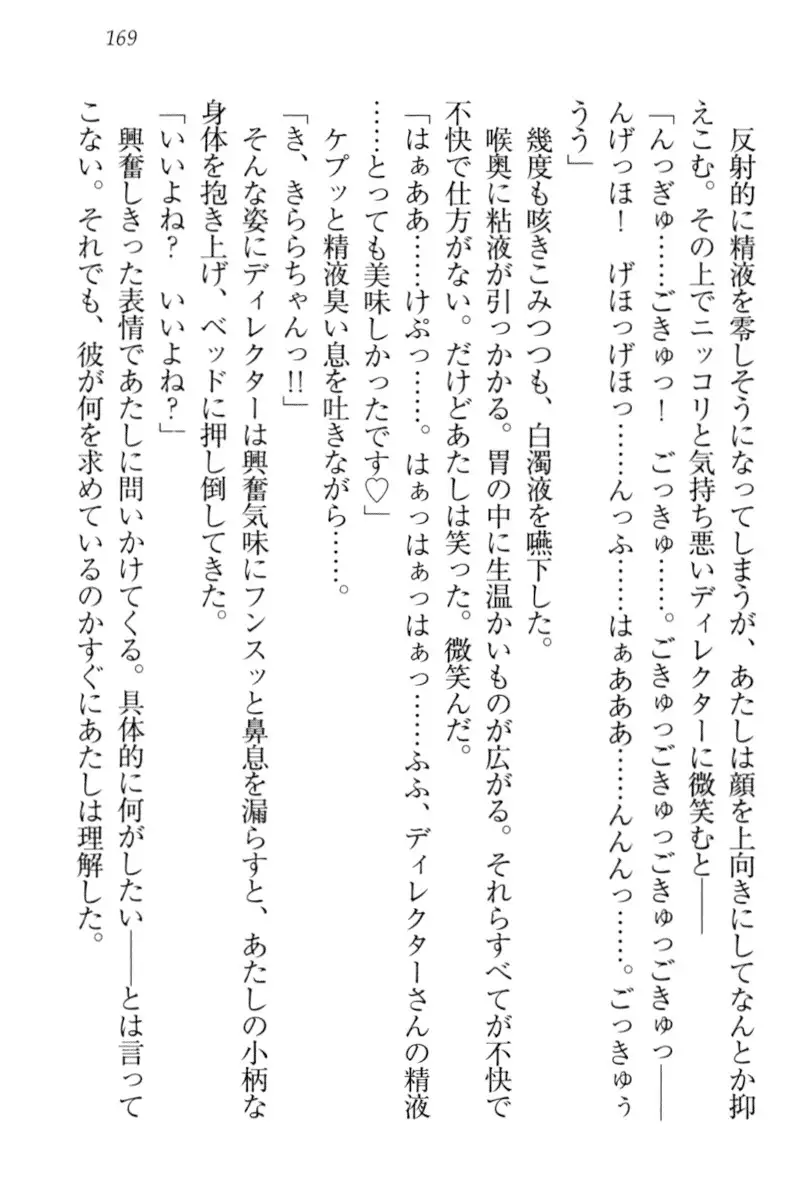 169
反射的に精液を零しそうになってしまうが、あたしは顔を上向きにしてなんとか抑
えこむ。その上でニッコリと気持ち悪いディレクターに微笑むと――
「んっぎゅ……ごきゅっ！　ごっきゅ……。ごきゅっごきゅっごきゅっごきゅっ――
んげっほ！　げほっげほっ……んっふ……はぁあああ……んんんっ……。ごっきゅぅ
うう」
幾度も咳きこみつつも、白濁液を嚥下した。
喉奥に粘液が引っかかる。胃の中に生温かいものが広がる。それらすべてが不快で
不快で仕方がない。だけどあたしは笑った。微笑んだ。
「はぁああ……けぷっ……。はぁっはぁっはぁっ……ふふ、ディレクターさんの精液
……とっても美味しかったです♡」
ケプッと精液臭い息を吐きながら……。
「き、きららちゃんっ!!」
そんな姿にディレクターは興奮気味にフンスッと鼻息を漏らすと、あたしの小柄な
身体を抱き上げ、ベッドに押し倒してきた。
「いいよね？　いいよね？」
興奮しきった表情であたしに問いかけてくる。具体的に何がしたい――とは言って
こない。それでも、彼が何を求めているのかすぐにあたしは理解した。